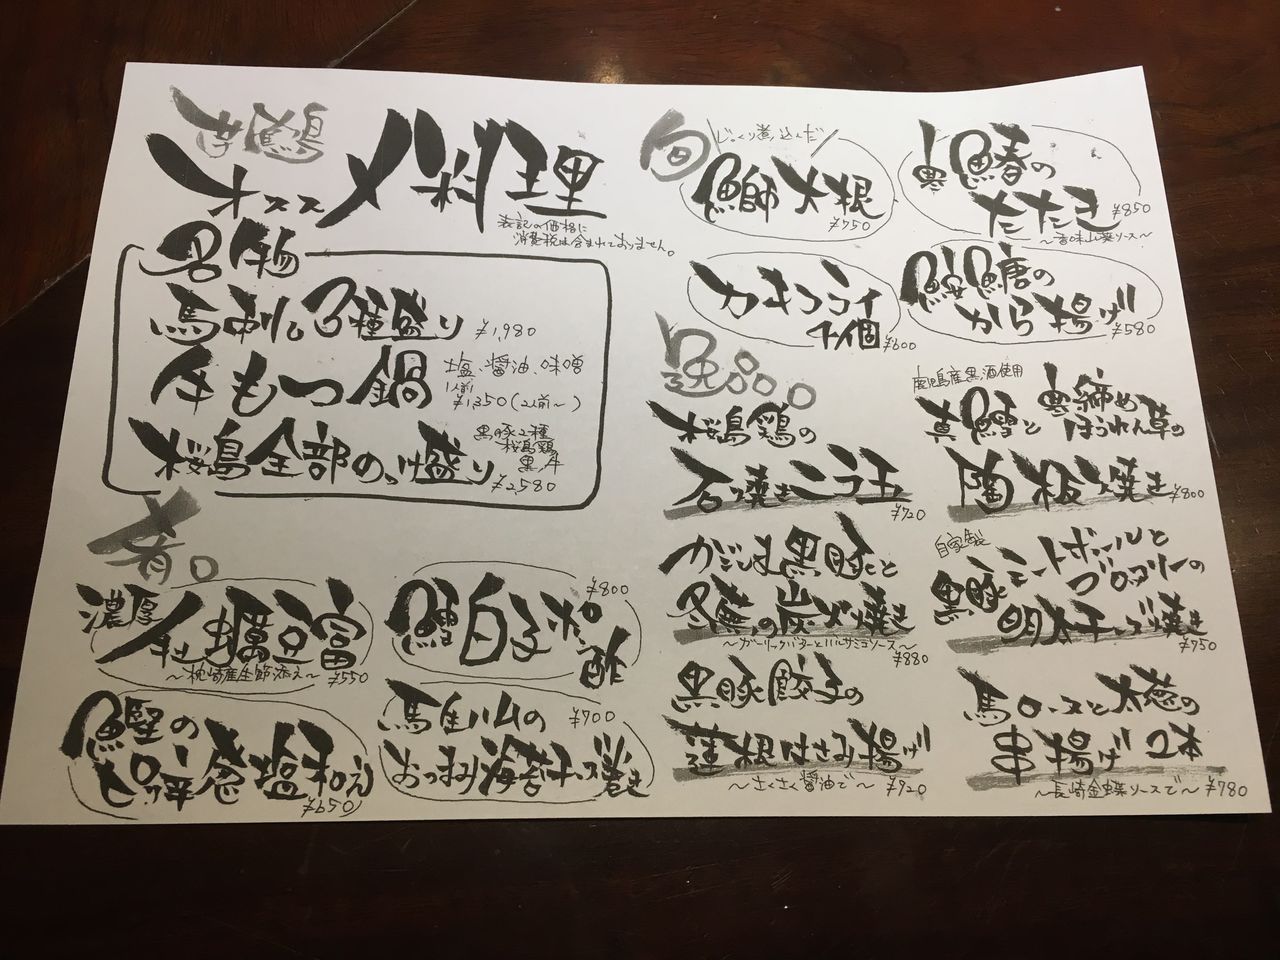 オススメ料理
表記の価格に
消費税は含まれておりません。
名物
馬刺し3種盛り ¥1,980
牛もつ鍋 塩、醤油、味噌
1人前
¥1,350(2人前~)
桜島全部のっけ盛り
黒豚2種
桜島鶏
黒牛
¥2,580
肴。
濃厚牡蠣豆富
~枕崎産生節添え~ ¥550
鱈白子ポン酢 ¥800
鰹の
ピリ辛 塩和え
¥650
馬生ハムの ¥700
おつまみ海苔チーズ巻き
旬
じっくり煮込んだ
鰤大根
¥750
寒鰆の
たたき ¥850
~香味山葵ソース~
カキフライ
1個 ¥600
鮟鱇の
から揚げ ¥580
逸品。
桜島鶏の
石焼きニラ玉
¥720
鹿児島産黒酒使用
真鱈と寒締め
ほうれん草の
陶板焼き ¥800
かごしま黒豚と
冬葱の炭火焼き
~ガーリックバターとバルサミコソース~
¥880
自家製
黒豚ミートボールと
ブロッコリーの
明太チーズ焼き
¥750
黒豚餃子の
蓮根はさみ揚げ
~さくさく醤油で~ ¥720
馬ロースと太葱の
串揚げ 2本
~長崎金蝶ソースで~ ¥780